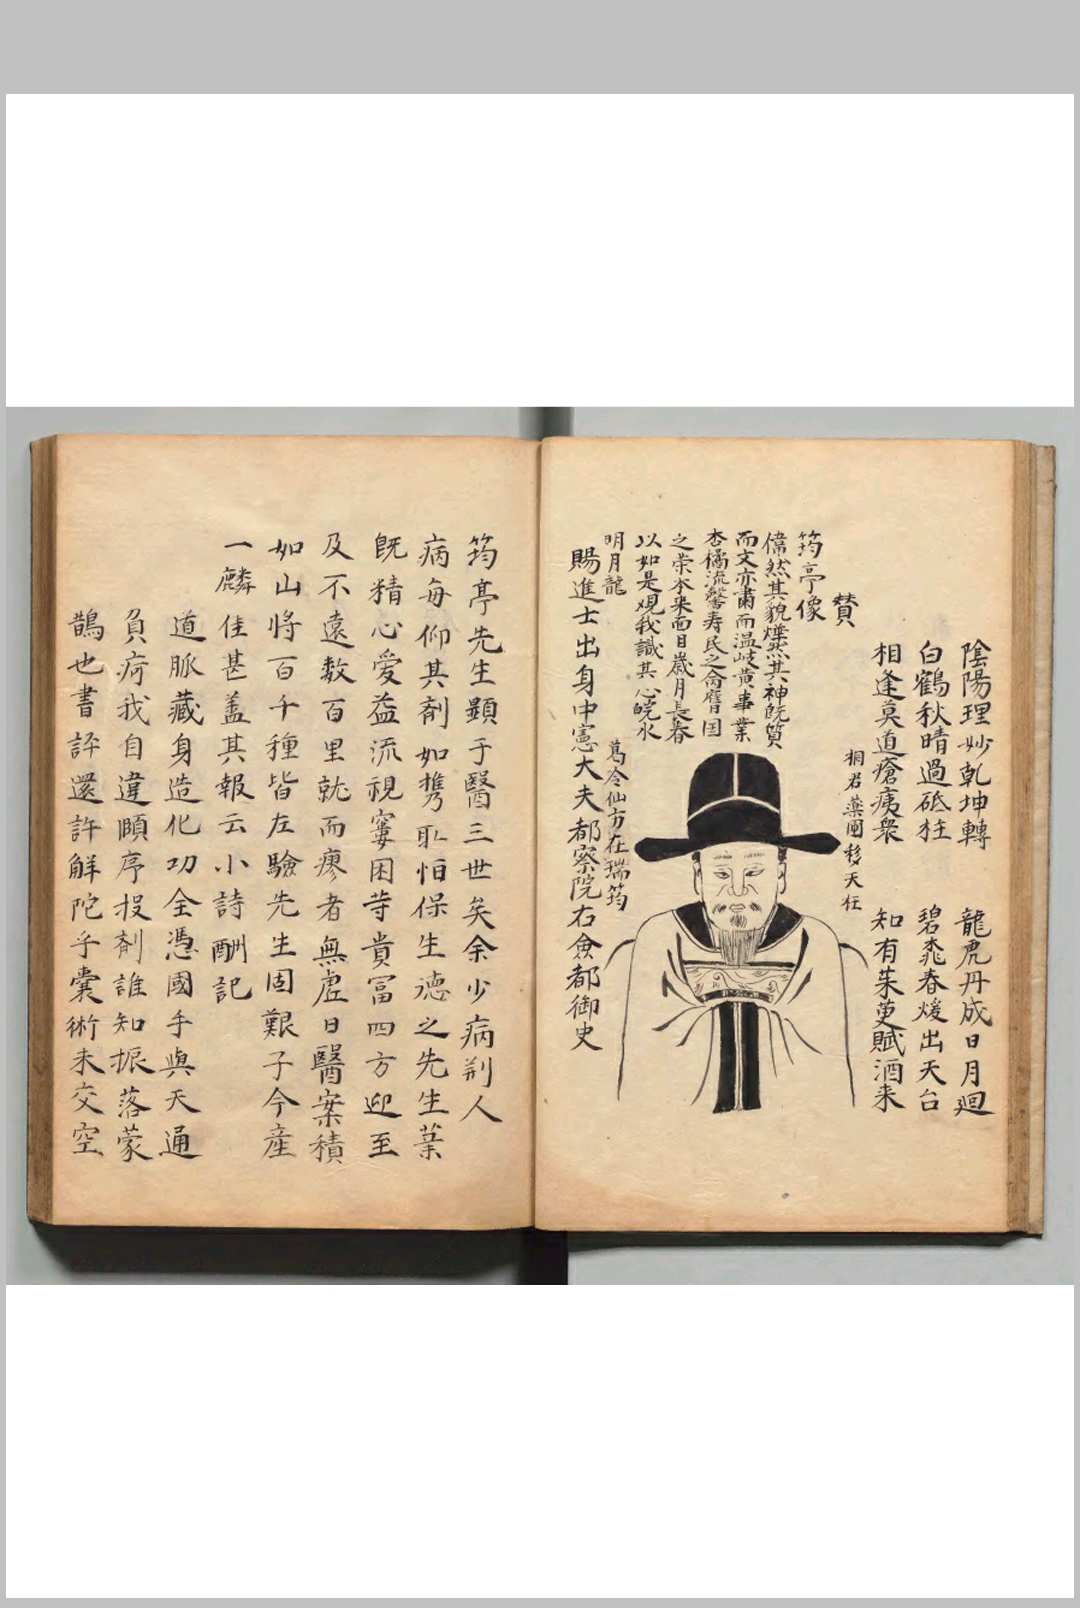 陰陽理妙乾坤轉 龍虎丹成日月廻
白鶴秋晴過砥柱 碧桃春煖出天台
相逢莫道瘡痍衆 知有茱萸賦酒来
桐君藥國移天任
賛
筠亭像
偉然其貌燁然其神既質
而文亦肅而温岐黄事業
杏橘流馨寿民之侖膺国
之荣本来面目歳月長春
以如是观我識其心皖水
明月龍
葛令仙方在瑞筠
賜進士出身中憲大夫都察院右僉都御史
筠亭先生顯于醫三世矣余少病荆人
病毎仰其剤如携取怕保生德之先生葉
既精心愛益流視窶困苛貴冨四方迎至
及不遠数百里就而瘳者無虚日醫案積
如山将百千種皆左驗先生固艱子今産
一麟佳甚盖其報云小詩酬記
道脈藏身造化功全憑國手與天通
負疴我自違頤序投剤誰知振落蒙
鵲也書評還許解陀乎囊術未交空